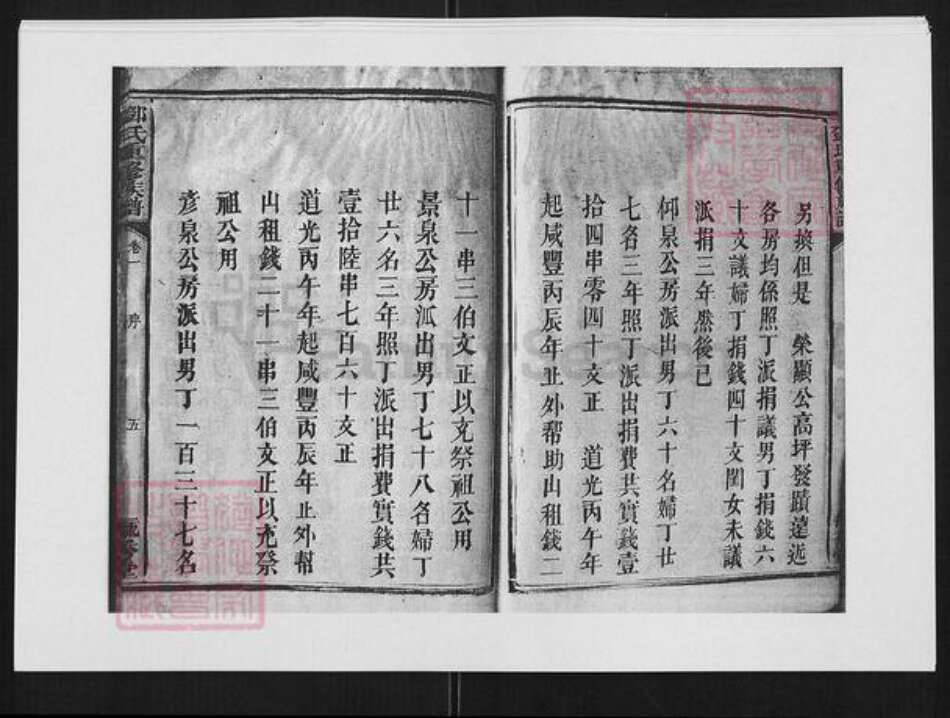 另換但是　榮顯公高坪發蹟遠近
各房均係照丁派捐議男丁捐錢六
十文議婦丁捐錢四十文閨女未議
派捐三年然後已
仰泉公房派出男丁六十名婦丁廿
七名三年照丁派出捐費共實錢壹
拾四串零四十文正　道光丙午年
起咸豐丙辰年止外帮助山租錢二
十一串三伯文正以充祭祖公用
景泉公房派出男丁七十八名婦丁
廿六名三年照丁派出捐費實錢共
壹拾陸串七百六十文正
道光丙午年起咸豐丙辰年止外幫
山租錢二十一串三伯文正以充祭
祖公用
彦泉公房派出男丁一百三十七名
鄧氏重修族譜　卷一　序　五